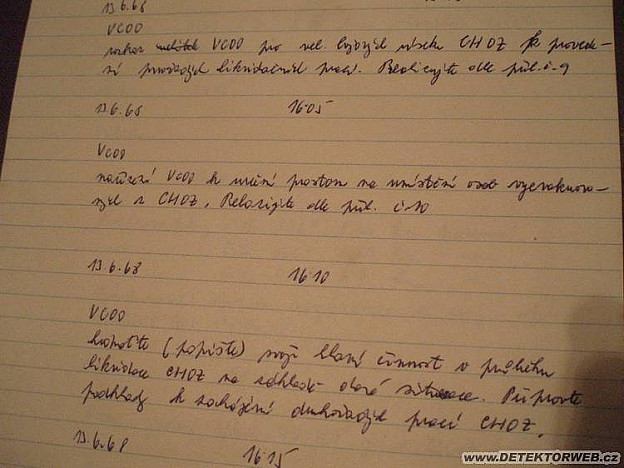 13.6.68
VCOO
rozkaz VCOO pro vel. bojových úseku CHOZ k provede-
ní prvotních likvidačních prací. Realizujte dle příl. č. 9
13.6.68 16 05
VCOO
nařízení VCOO k určení prostoru na umístění osob vyevakuova-
ných z CHOZ. Realizujte dle příl. č 10
13.6.68 16 10
VCOO
hodnoťte (popište) svoji hlavní činnost v průběhu
likvidace CHOZ na základě situace. Připravte
podklady k zahájení druhotných prací CHOZ.
13.6.68 16 15
www.DETEKTORWEB.cz